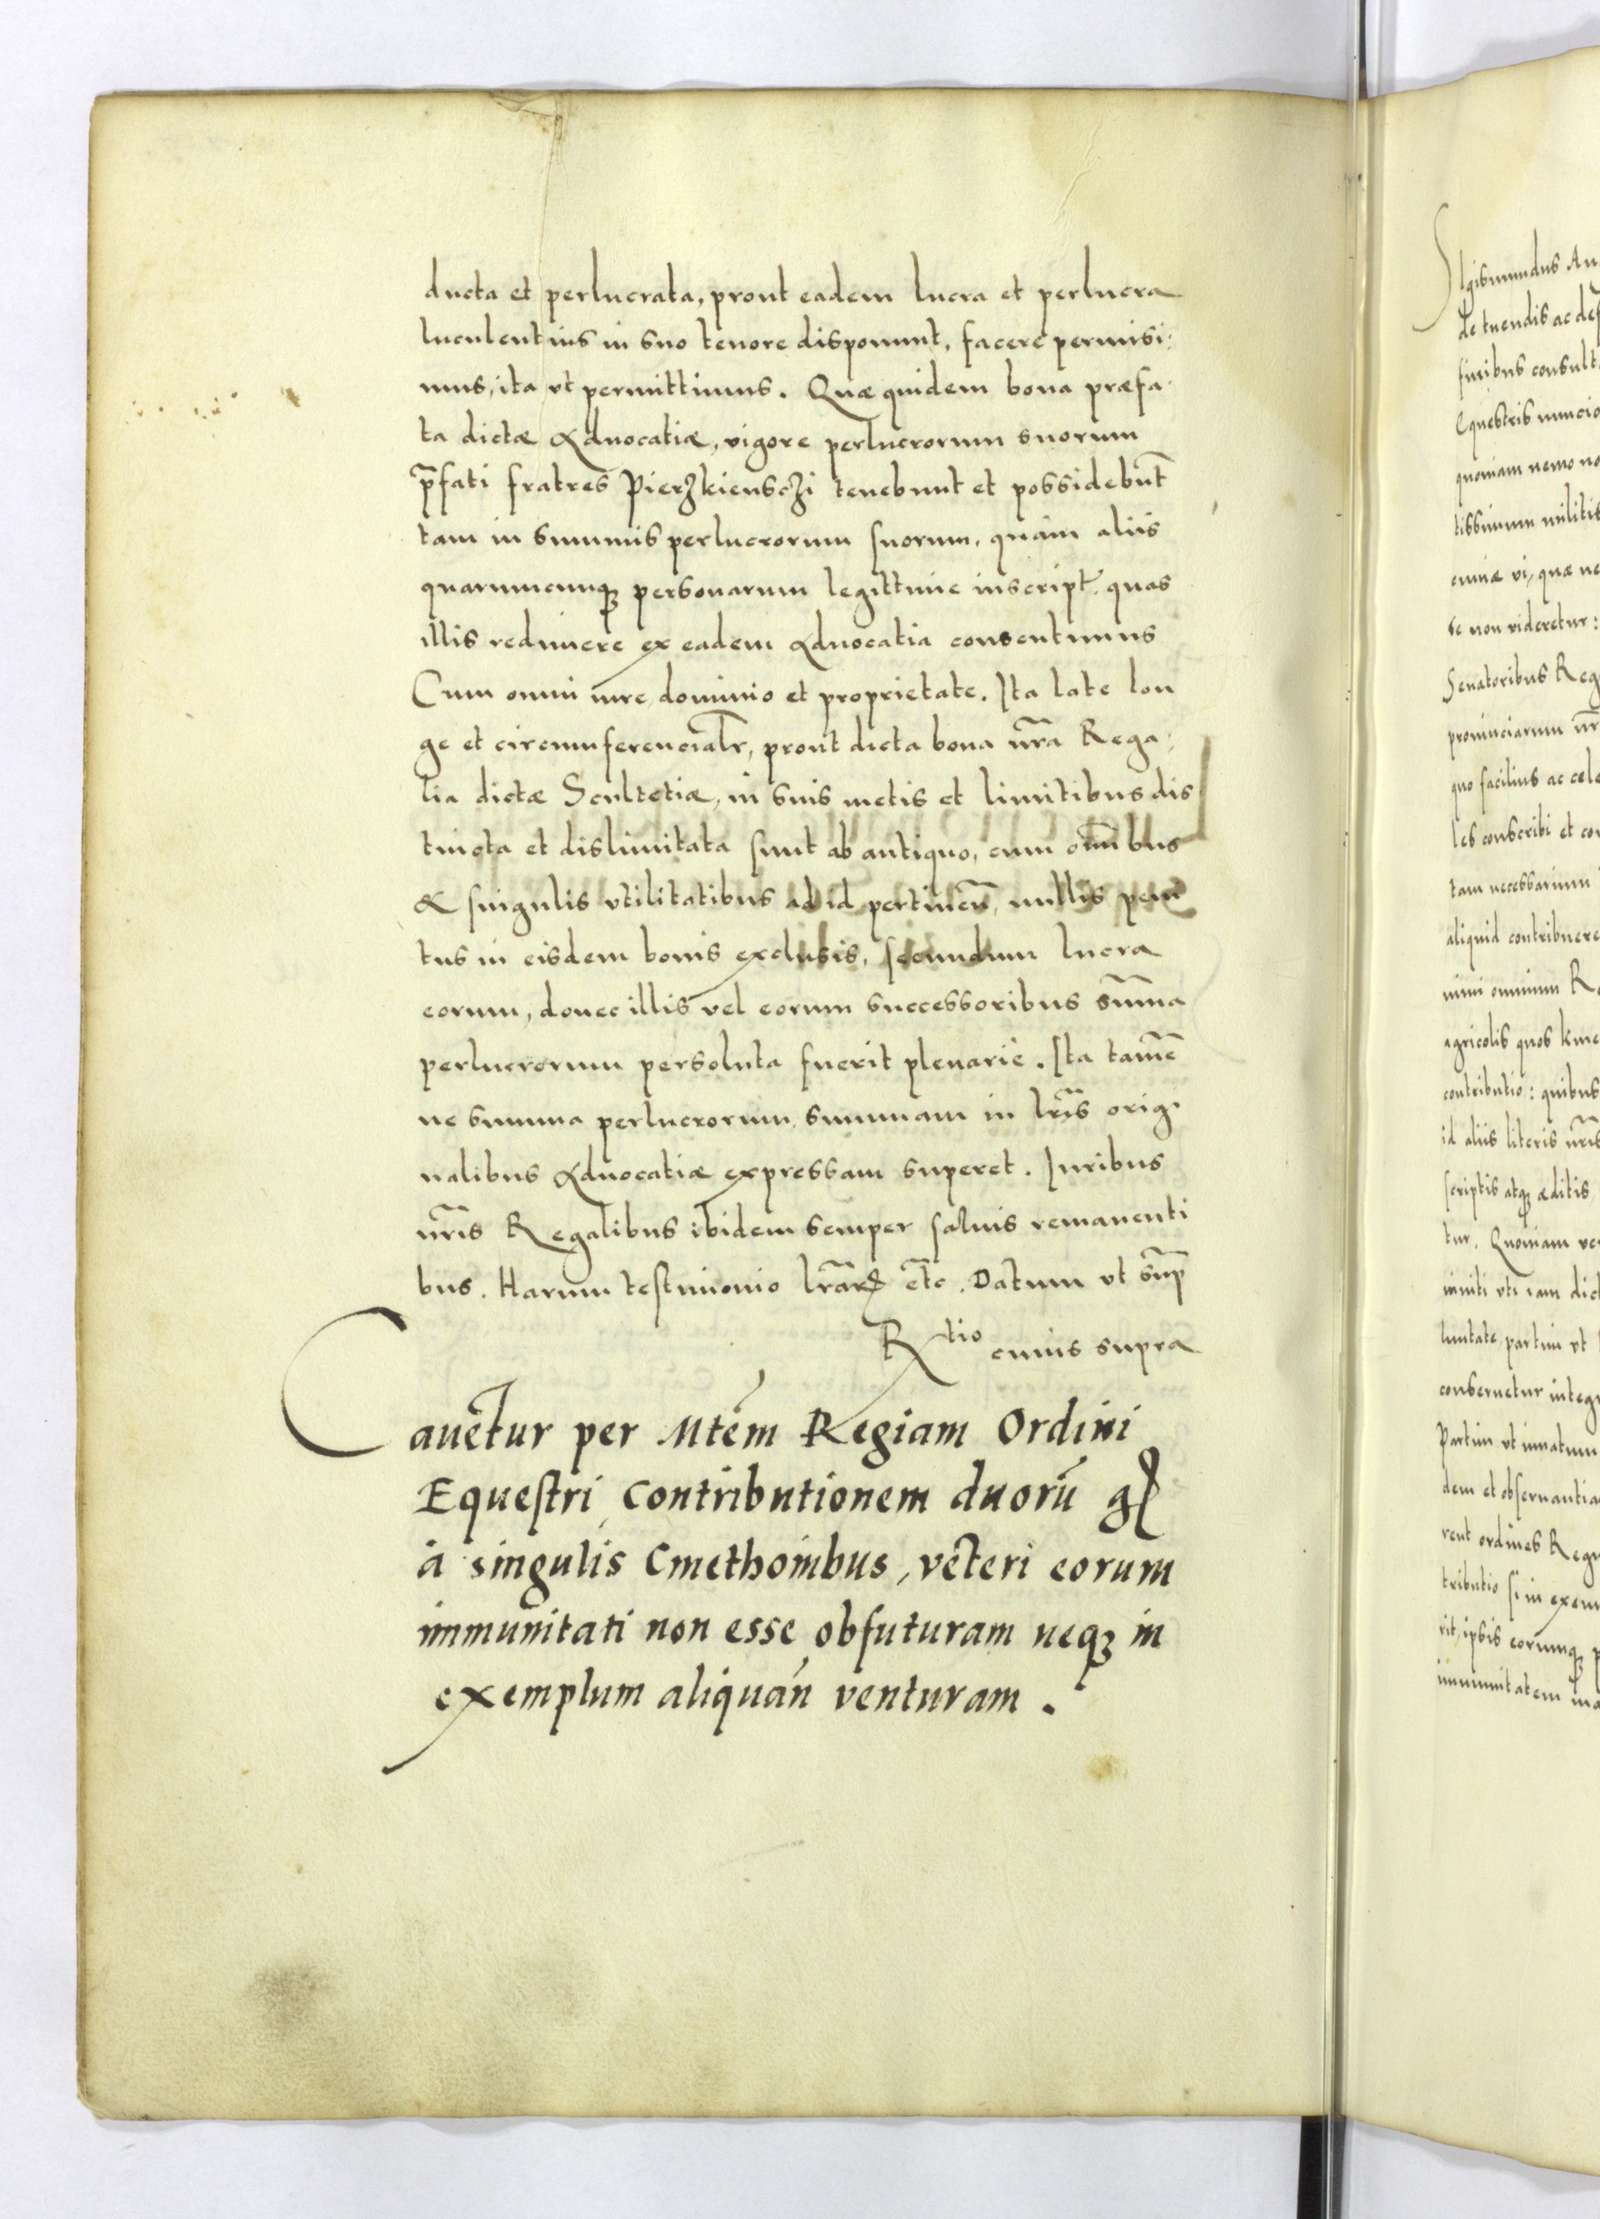 ducta et perlucrata, prout eadem lucra et perlucra
luculentius in suo tenore disponunt, facere permisi:
mus, ita vt permittimus. Quæ quidem bona præfa
ta dictæ Aduocatiæ, vigore perlucrorum suorum
p̄fati fratres Pierzkiensczi tenebunt et possidebūt
tam in summis perlucrorum suorum, quàm aliis
quarumcunq personarum legittime inscript. quas
illis redimere ex eadem Aduocatia consentimus
Cum omni iure dominio et proprietate. Ita late lon
ge et circumferencialr̄, prout dicta bona nr̄a Rega:
lia dictæ Scultetiæ, in suis metis et limitibus dis
tincta et dislimitata sunt ab antiquo, cum om̄ibus
& singulis vtilitatibus ad id pertineñ, nullis peni
tus in eisdem bonis exclusis, secundum lucra
eorum, donec illis vel eorum successoribus sum̄a
perlucrorum persoluta fuerit plenariè. Ita tamē
ne summa perlucrorum, summam in lr̄is origi
nalibus Aduocatiæ expressam superet. Iuribus
nr̄is Regalibus ibidem semper saluis remanenti
bus. Harum testimonio lr̄arꝝ etc̄. Datum vt sup̄
Rtio cuius supra
Cauetur per Mtem Regiam Ordini
Equestri contributionem duorū gꝝ
à singulis Cmethonibus, veteri eorum
immunitati non esse obfuturam neqꝫ in
exemplum aliquañ venturam.
Sigismundus Au
de tuendis ac def
finibus consult
Equestris nuncio
quoniam nemo no
tissimum militis
cunæ vi, quæ ne
se non videretur:
Senatoribus Reg
prouinciarum nr̄
quo facilius ac cele
les conscribi et con
tam necessarium
aliquid contribuere
nimi omnium R
agricolis quos kme
contributio: quibus
id aliis literis nr̄is
scriptis atqꝫ æditis
tur. Quoniam ve
initi vti iam dict
luntate, partim vt
conseruetur integr
Partim vt innatum
dem et obseruantia
rent ordines Regn
tributio si in exem
rit, ipsis eorumqꝫ p
immunitatem ma